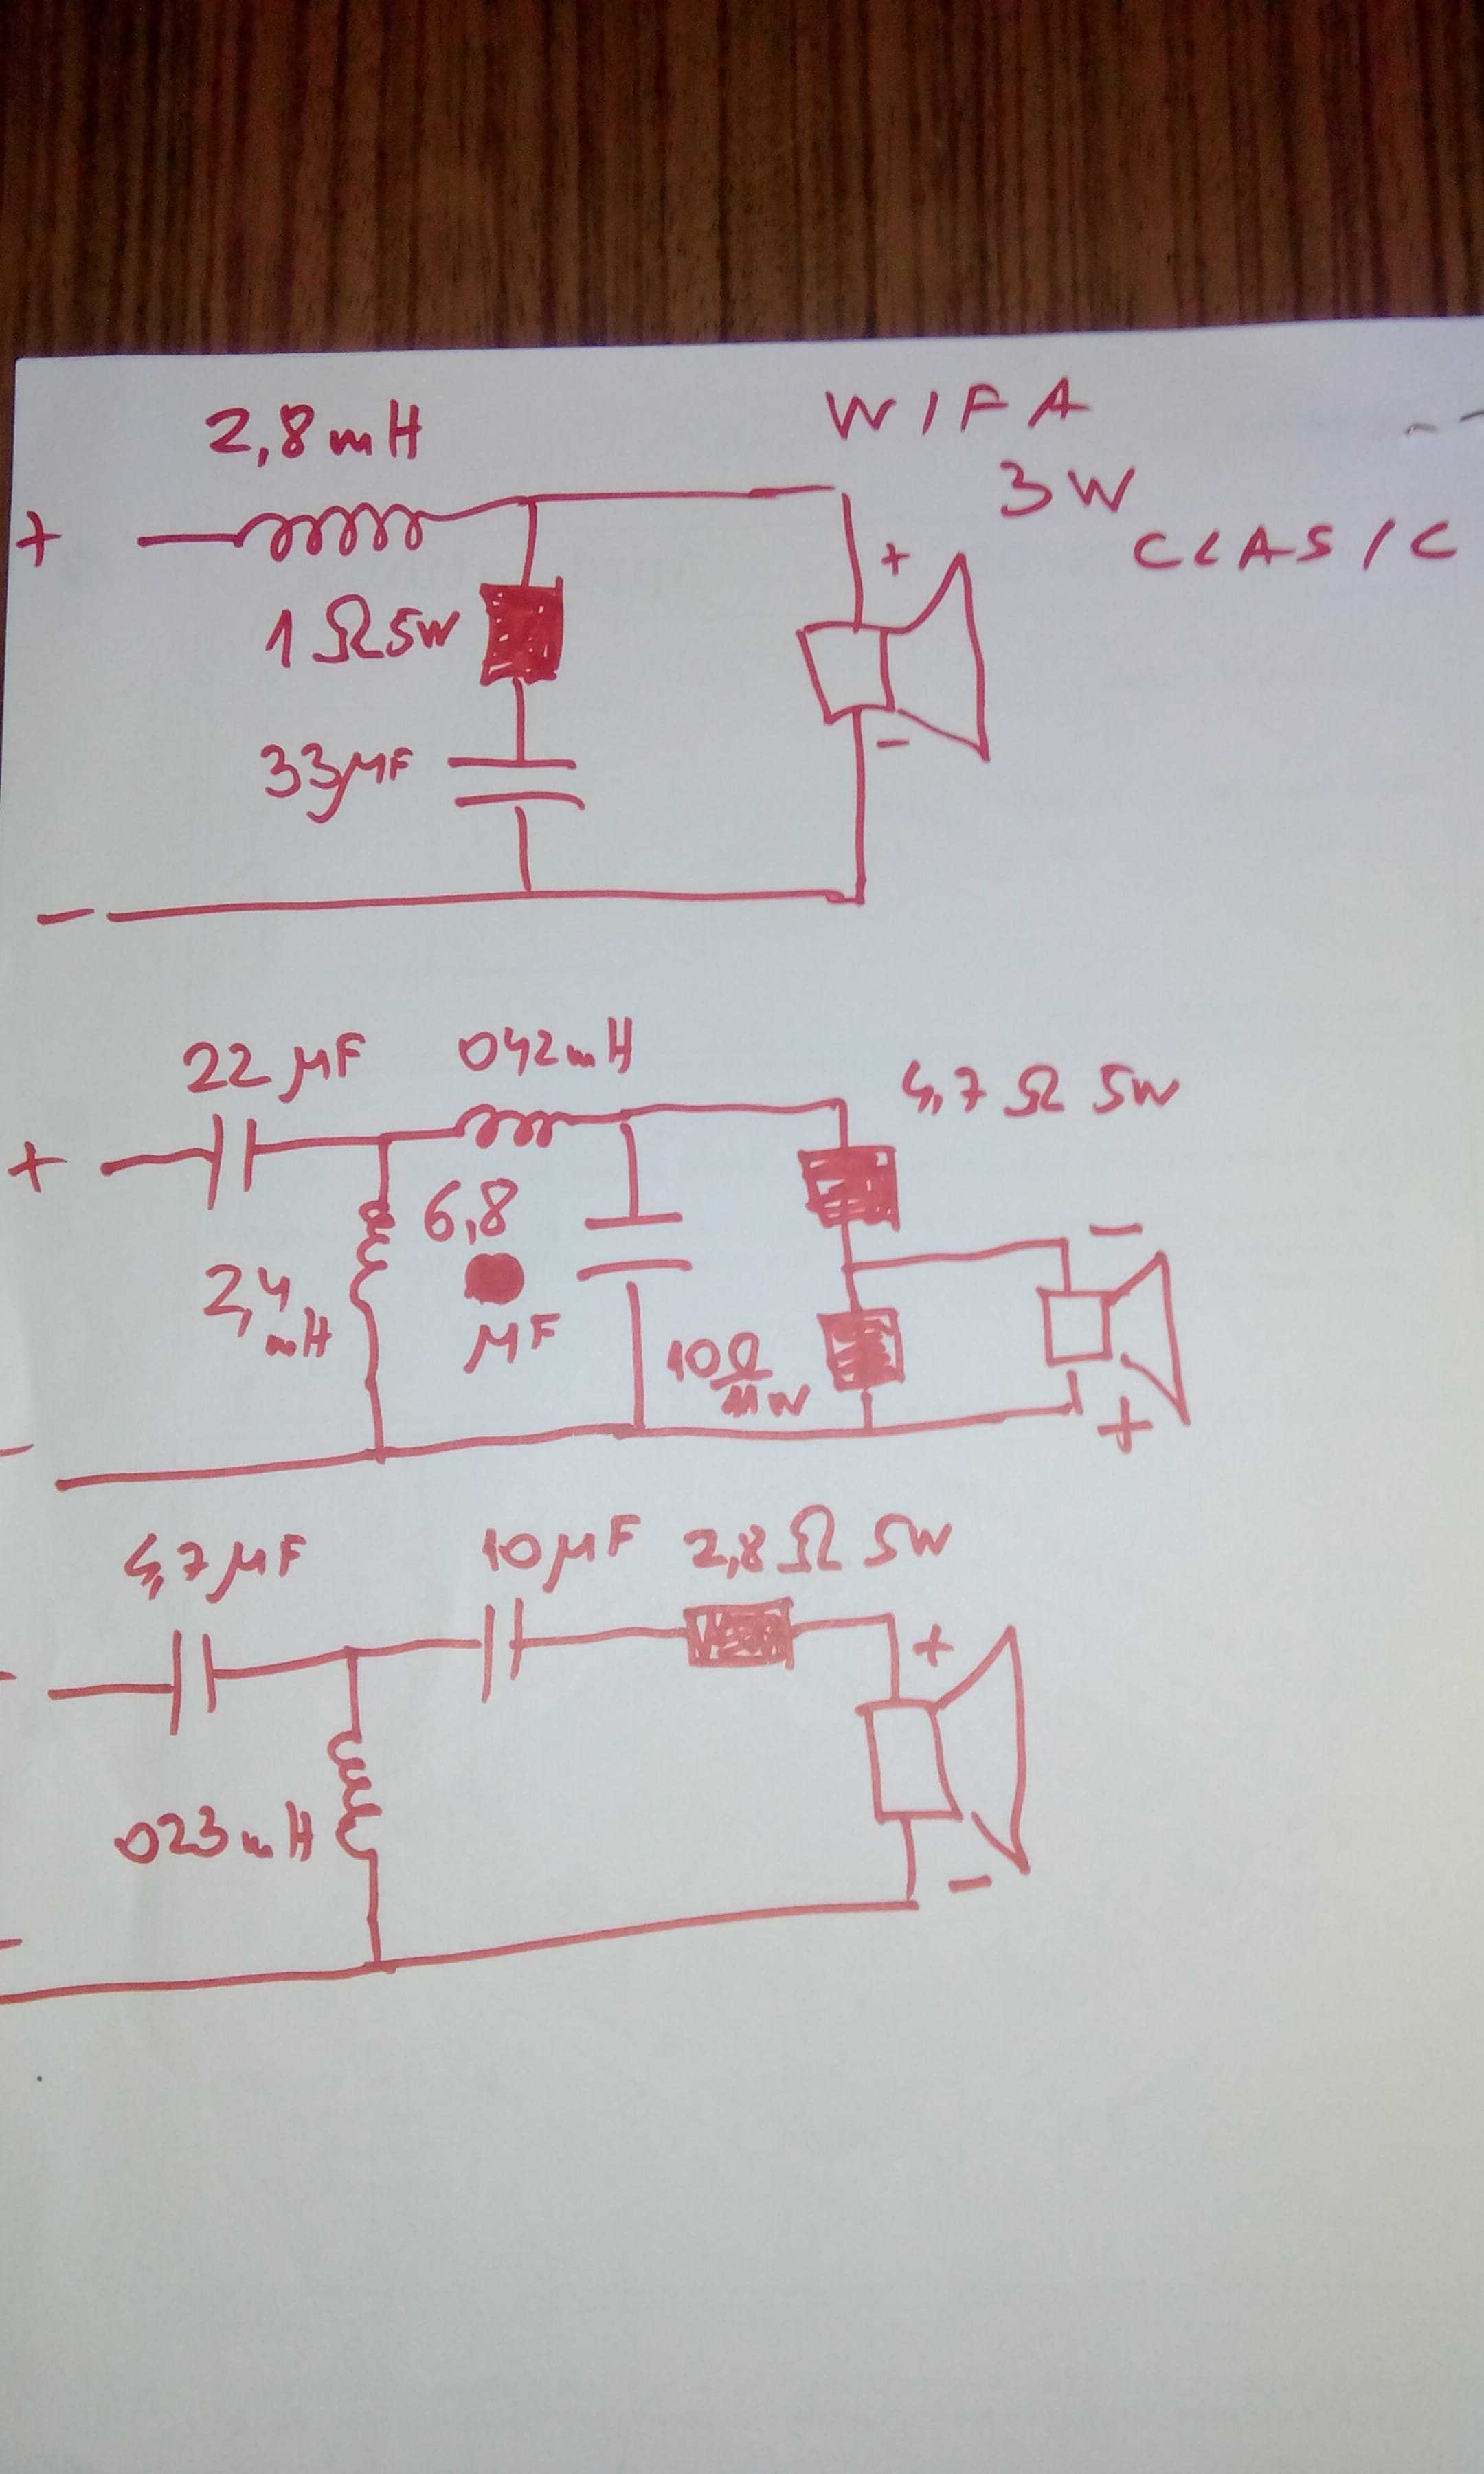 2,8mH
WIFA
3W
CLASIC
+
1Ω5W
+
33μF
-
-
22μF
042mH
4,7Ω 5W
+
6,8
μF
-
2,4
mH
10Ω
11W
+
-
4,7μF
10μF
2,8Ω 5W
+
023mH
-
-